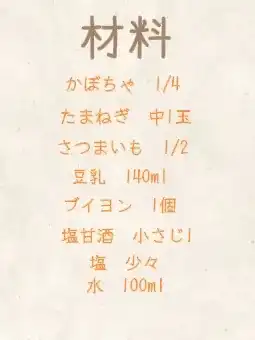 材料
かぼちゃ 1/4
たまねぎ 中1玉
さつまいも 1/2
豆乳 140ml
ブイヨン 1個
塩甘酒 小さじ1
塩 少々
水 100ml